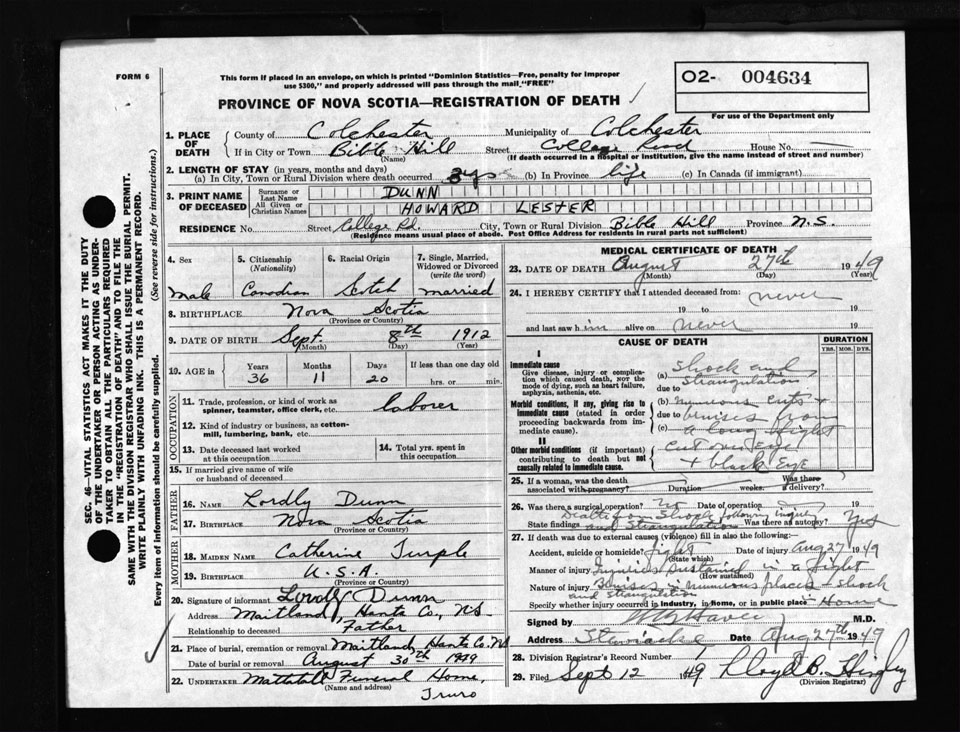 FORM 6
This form if placed in an envelope, on which is printed "Dominion Statistics—Free, penalty for improper
use $300," and properly addressed will pass through the mail "FREE"
O2- 004634
For use of the Department only
PROVINCE OF NOVA SCOTIA—REGISTRATION OF DEATH
1. PLACE OF DEATH County of Colchester Municipality of Colchester
If in City or Town Bible Hill Street College Road House No. —
(Name) (If death occurred in a hospital or institution, give the name instead of street and number)
2. LENGTH OF STAY (in years, months and days)
(a) In City, Town or Rural Division where death occurred (b) In Province life (c) In Canada (if immigrant)
3. PRINT NAME OF DECEASED Surname or Last Name DUNN
All Given or Christian Names HOWARD LESTER
RESIDENCE No. Street College Rd. City, Town or Rural Division Bible Hill Province N.S.
(Residence means usual place of abode. Post Office Address for residents in rural parts not sufficient)
4. Sex 5. Citizenship (Nationality) 6. Racial Origin 7. Single, Married, Widowed or Divorced (write the word)
Male Canadian Scotch married
8. BIRTHPLACE Nova Scotia
(Province or Country)
9. DATE OF BIRTH Sept. 8th 1912
(Month) (Day) (Year)
10. AGE in Years Months Days If less than one day old
36 11 20 hrs. or min.
OCCUPATION
11. Trade, profession, or kind of work as spinner, teamster, office clerk, etc. laborer
12. Kind of industry or business, as cotton-mill, lumbering, bank, etc.
13. Date deceased last worked at this occupation 14. Total yrs. spent in this occupation
15. If married give name of wife or husband of deceased
FATHER
16. NAME Lordly Dunn
17. BIRTHPLACE Nova Scotia
(Province or Country)
MOTHER
18. MAIDEN NAME Catherine Turple
19. BIRTHPLACE U.S.A.
(Province or Country)
20. Signature of informant Lordly Dunn
Address Maitland, Hants Co, NS
Relationship to deceased Father
21. Place of burial, cremation or removal Maitland, Hants Co. NS
Date of burial or removal August 30th 1949
22. UNDERTAKER Funeral Home,
(Name and address) Truro
MEDICAL CERTIFICATE OF DEATH
23. DATE OF DEATH August 27th 1949
(Month) (Day) (Year)
24. I HEREBY CERTIFY that I attended deceased from never
19 to 19
and last saw him alive on never 19
CAUSE OF DEATH DURATION
YRS. MOS. DYS.
I
Immediate cause
Give disease, injury or complication which caused death, not the mode of dying, such as heart failure, asphyxia, asthenia, etc.
(a) Shock and
due to Strangulation
Morbid conditions, if any, giving rise to immediate cause (stated in order proceeding backwards from immediate cause).
(b) numerous cuts +
due to bruises from
(c) a long fight
II
Other morbid conditions (if important) contributing to death but not causally related to immediate cause.
cut over Eye
+ black Eye
25. If a woman, was the death associated with pregnancy? Duration weeks Was there delivery?
26. Was there a surgical operation? Date of operation 19
Death from Shock following
State findings and Strangulation Was there an autopsy? Yes
27. If death was due to external causes (violence) fill in also the following:—
Accident, suicide or homicide? fight Date of injury Aug 27 1949
(State which)
Manner of injury Injuries sustained in a fight
(How sustained)
Nature of injury Bruises in numerous places + shock
and strangulation
Specify whether injury occurred in Industry, in Home, or in public place Home
Signed by M.D.
Address Stewiacke Date Aug 27th 1949
28. Division Registrar's Record Number
29. Filed Sept 12 1949 Lloyd B.
(Division Registrar)
SEC. 46 VITAL STATISTICS ACT MAKES IT THE DUTY
OF THE UNDERTAKER OR PERSON ACTING AS UNDER-
TAKER TO OBTAIN ALL THE PARTICULARS REQUIRED
IN THE "REGISTRATION OF DEATH" AND TO FILE THE
SAME WITH THE DIVISION REGISTRAR WHO SHALL ISSUE THE BURIAL PERMIT.
WRITE PLAINLY WITH UNFADING INK. THIS IS A PERMANENT RECORD.
Every item of information should be carefully supplied. (See reverse side for instructions.)